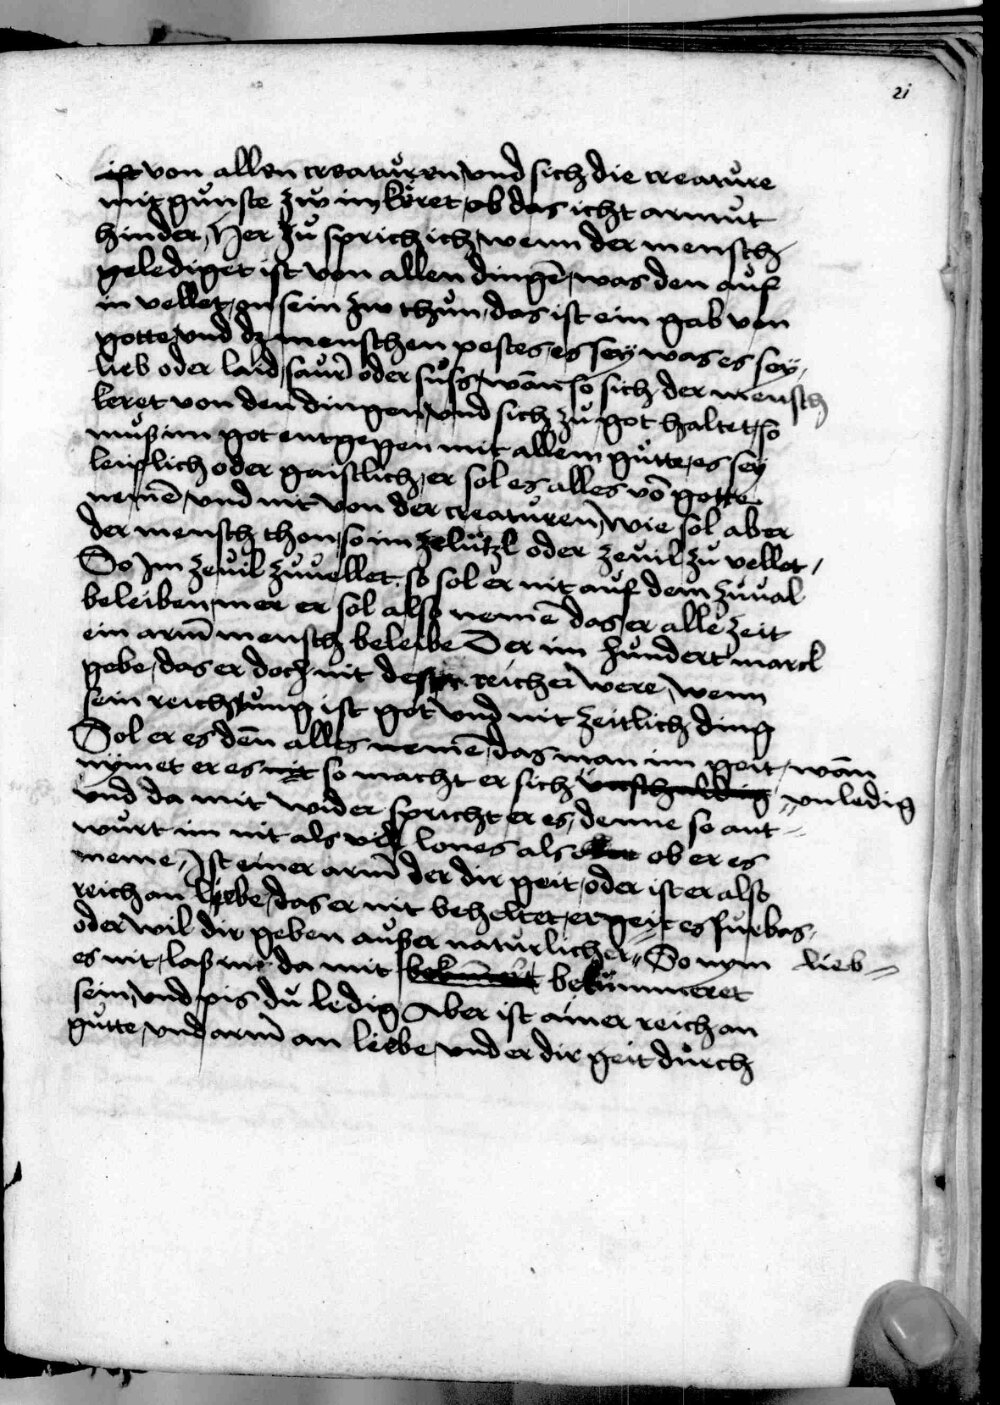 21
ist von allen creaturen, vnd sich die creature
mit gunste zw im köret, ob das icht armut
hinder, Her zu sprich ich, wenn der mensch
gelediget ist von allen dingē, was den auf
in vellet, on sein zw thun, das ist ein gab von
gotte, vnd dz menschen pestes, es sey was es sey,
lieb oder laid, saur oder süss, wān so sich der mensch
keret von den dingen, vnd sich zu got haltet, so
muß im got entgegen mit allem gutte, es sey
leiplich oder gaistlich, er sol es alles vō gotte
nemē, vnd nit von der creaturen, wie sol aber
der mensch thon, so im zelützl oder zeuil zu vellet,
So Im zeuil zuuellet, so sol er nit auf dem zuual
beleiben, mer er sol also nemē das er alle zeit
ein arm mensch beleibe Der im hundert marck
gebe, das er doch nit reicher were, wenn
sein reichtung ist got vnd nit zeitlich ding
Sol er es dēn alles nemē, das man im geit, wān
nymet er es nit so macht er sich vnschuldig vnledig
vnd da mit wider spricht er es, denne so ant
wurt im nit als vil lones als ob er es
neme, Ist einer arm der dir geit, oder ist er also
reich an liebe, das er nit beheltet, er geit es furbas,
oder wil dir geben außer naturlicher So nym lieb
es nit, laß in da mit bekümmeret
sein, vnd pis du ledig Aber ist ainer reich an
gutte, vnd arm an liebe, vnd er dir geit durch